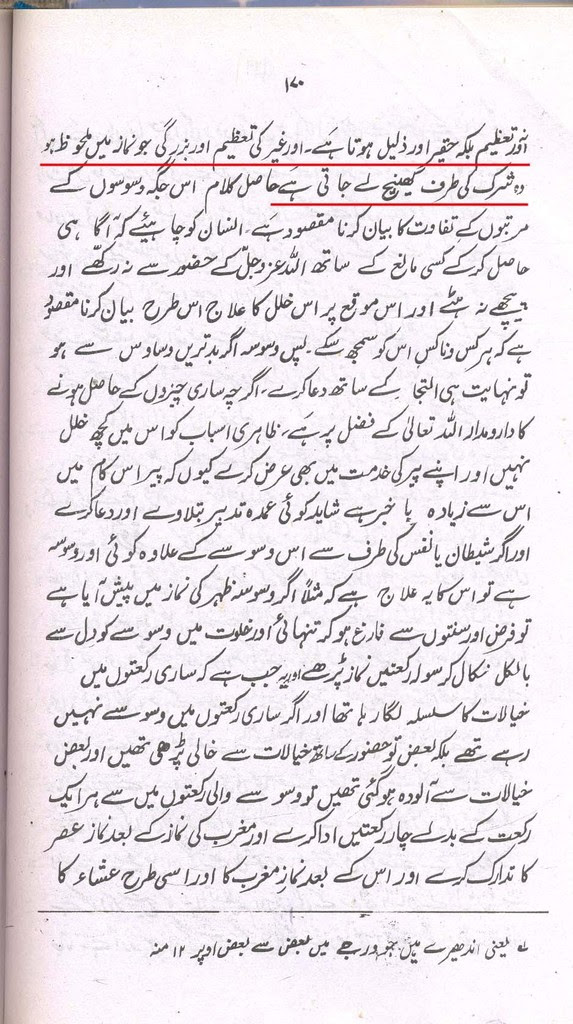 ۱۷۰
اور تعظیم بلکہ حقیر اور ذلیل ہوتا ہے۔ اور غیر کی تعظیم اور بزرگی جو نماز میں ملحوظ ہو
وہ شرک کی طرف کھینچ لے جاتی ہے حاصل کلام اس جگہ وسوسوں کے
مرتبوں کے تفاوت کا بیان کرنا مقصود ہے۔ انسان کو چاہیئے کہ آگاہی
حاصل کر کے کسی مانع کے ساتھ اللہ عزوجلّ کے حضور سے نہ رکھے اور
پیچھے نہ ہٹے اور اس موقع پر اس خلل کا علاج اس طرح بیان کرنا مقصود
ہے کہ ہر کس و ناکس اس کو سمجھ سکے۔ پس وسوسہ اگر بدترین وساوس سے ہو
تو نہایت ہی التجا کے ساتھ دعا کرے۔ اگرچہ ساری چیزوں کے حاصل ہونے
کا دارومدار اللہ تعالیٰ کے فضل پر ہے۔ ظاہری اسباب کو اس میں کچھ خلل
نہیں اور اپنے پیر کی خدمت میں بھی عرض کرے کیوں کہ پیر اس کام میں
اس سے زیادہ با خبر ہے شاید کوئی عمدہ تدبیر بتلاوے اور دعا کرے
اور اگر شیطان یا نفس کی طرف سے اس وسوسے کے علاوہ کوئی اور وسوسہ
ہے تو اس کا یہ علاج ہے کہ مثلاً اگر وسوسہ ظہر کی نماز میں پیش آیا ہے
تو فرض اور سنتوں سے فارغ ہو کر تنہائی اور خلوت میں وسوسے کو دل سے
بالکل نکال کر سولہ رکعتیں نماز پڑھے اور یہ جب ہے کہ ساری رکعتوں میں
خیالات کا سلسلہ لگا رہا تھا اور اگر ساری رکعتوں میں وسوسے نہیں
رہے تھے بلکہ بعض تو حضور کے ساتھ خیالات سے خالی پڑھی تھیں اور بعض
خیالات سے آلودہ ہو گئی تھیں تو وسوسے والی رکعتوں میں سے ہر ایک
رکعت کے بدلے چار رکعتیں ادا کرے اور مغرب کی نماز کے بعد نماز عصر
کا تدارک کرے اور اس کے بعد نماز مغرب کا اور اسی طرح عشاء کا
لہ یعنی اندھیرے میں جو درجے میں بعض سے بعض اوپر ۱۲ منہ